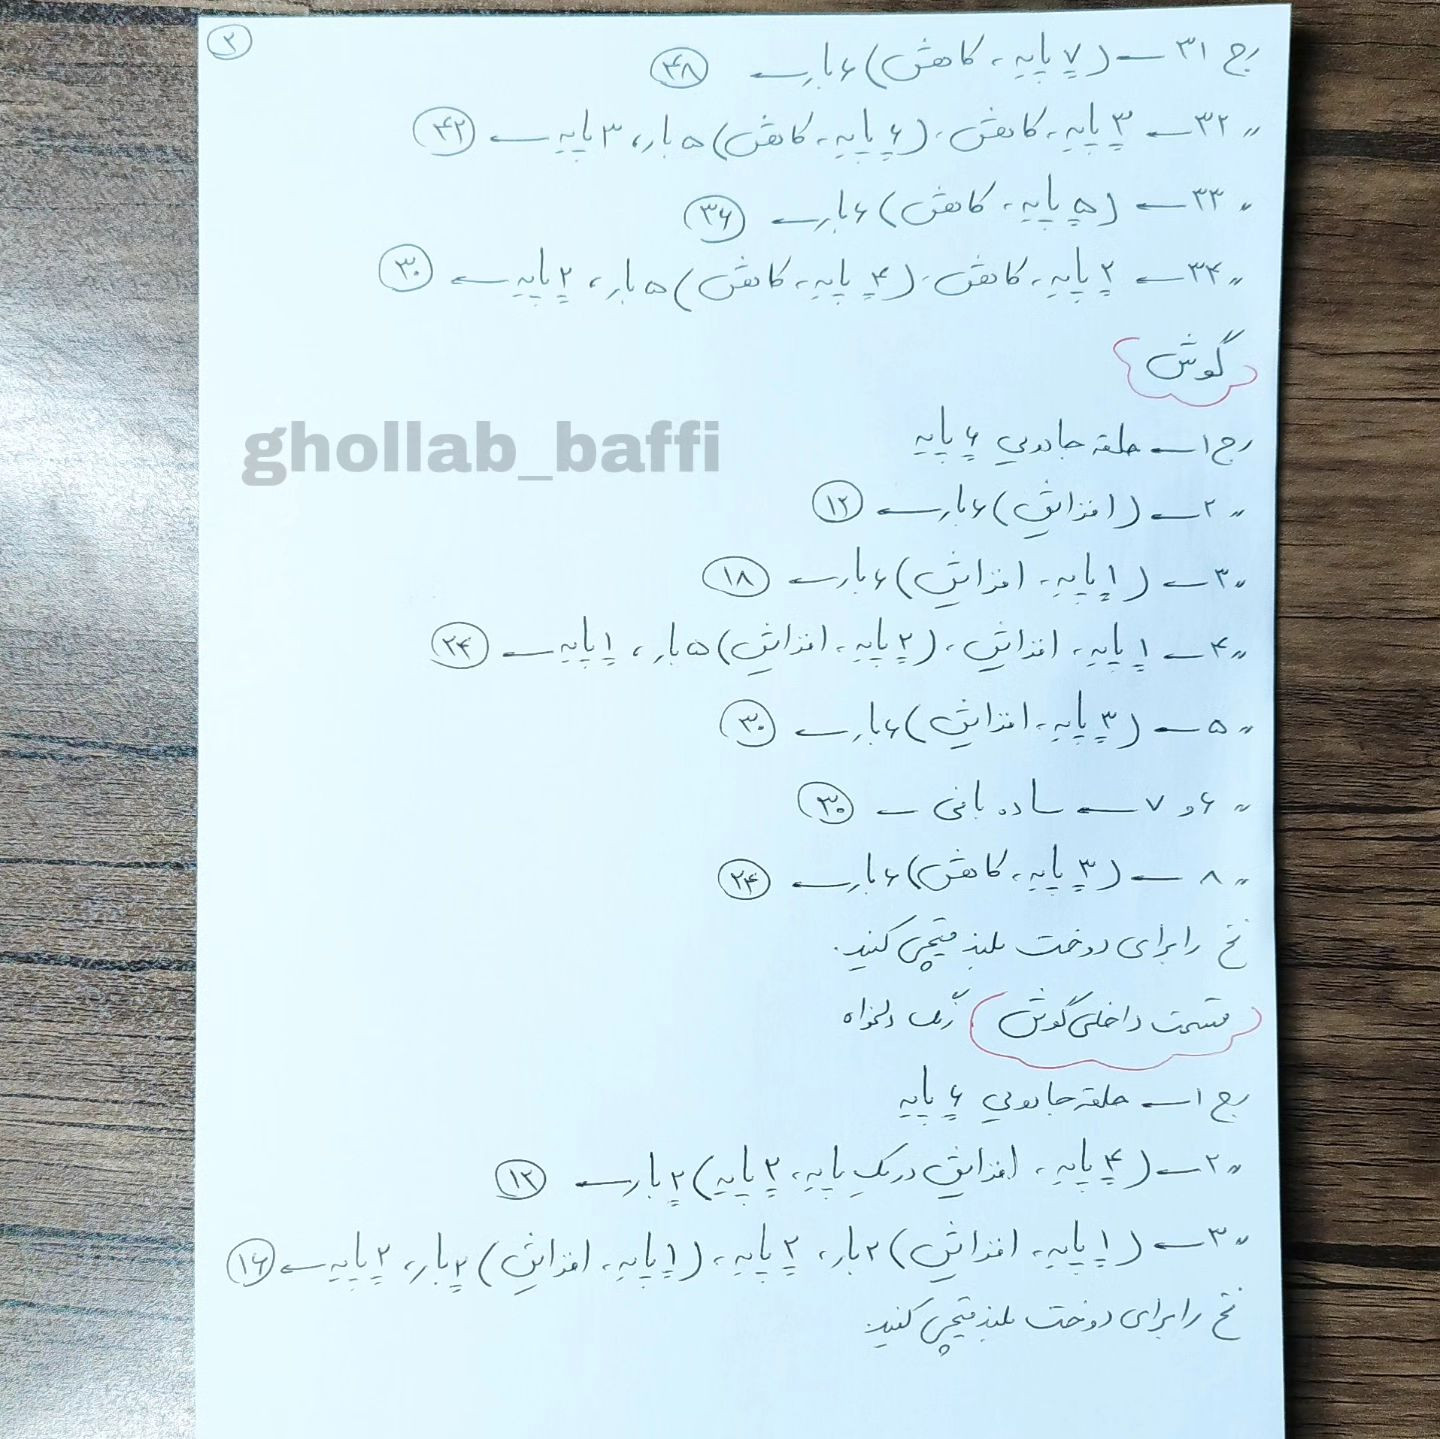 ۲
رج ۳۱ ← (۷ پایه، کاهش) ۶ بار ← ۴۸
〃 ۳۲ ← ۳ پایه، کاهش، (۶ پایه، کاهش) ۵ بار، ۳ پایه ← ۴۲
〃 ۳۳ ← (۵ پایه، کاهش) ۶ بار ← ۳۶
〃 ۳۴ ← ۲ پایه، کاهش، (۴ پایه، کاهش) ۵ بار، ۲ پایه ← ۳۰
گوش
رج ۱ ← حلقه جادویی ۶ پایه
ghollab_baffi
〃 ۲ ← (افزایش) ۶ بار ← ۱۲
〃 ۳ ← (۱ پایه، افزایش) ۶ بار ← ۱۸
〃 ۴ ← ۱ پایه، افزایش، (۲ پایه، افزایش) ۵ بار، ۱ پایه ← ۲۴
〃 ۵ ← (۳ پایه، افزایش) ۶ بار ← ۳۰
〃 ۶ و ۷ ← ساده بافی ← ۳۰
〃 ۸ ← (۳ پایه، کاهش) ۶ بار ← ۲۴
نخ را برای دوخت بلند قیچی کنید.
قسمت داخلی گوش رنگ دلخواه
رج ۱ ← حلقه جادویی ۶ پایه
〃 ۲ ← (۴ پایه، افزایش در یک پایه، ۲ پایه) ۲ بار ← ۱۲
〃 ۳ ← (۱ پایه، افزایش) ۲ بار، ۲ پایه، (۱ پایه، افزایش) ۲ بار، ۲ پایه ← ۱۶
نخ را برای دوخت بلند قیچی کنید.